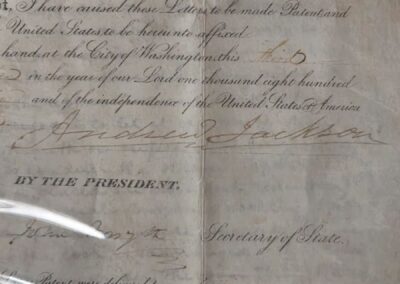 I have caused these Letters to be made Patent and
United States to be hereunto affixed
hand, at the City of Washington, this third
in the year of our Lord one thousand eight hundred
and of the independence of the United States of America
Andrew Jackson
BY THE PRESIDENT.
Secretary of State.